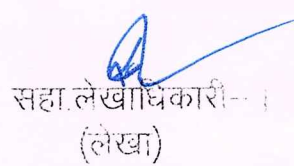 सहा.लेखाधिकारी--।
(लेखा)